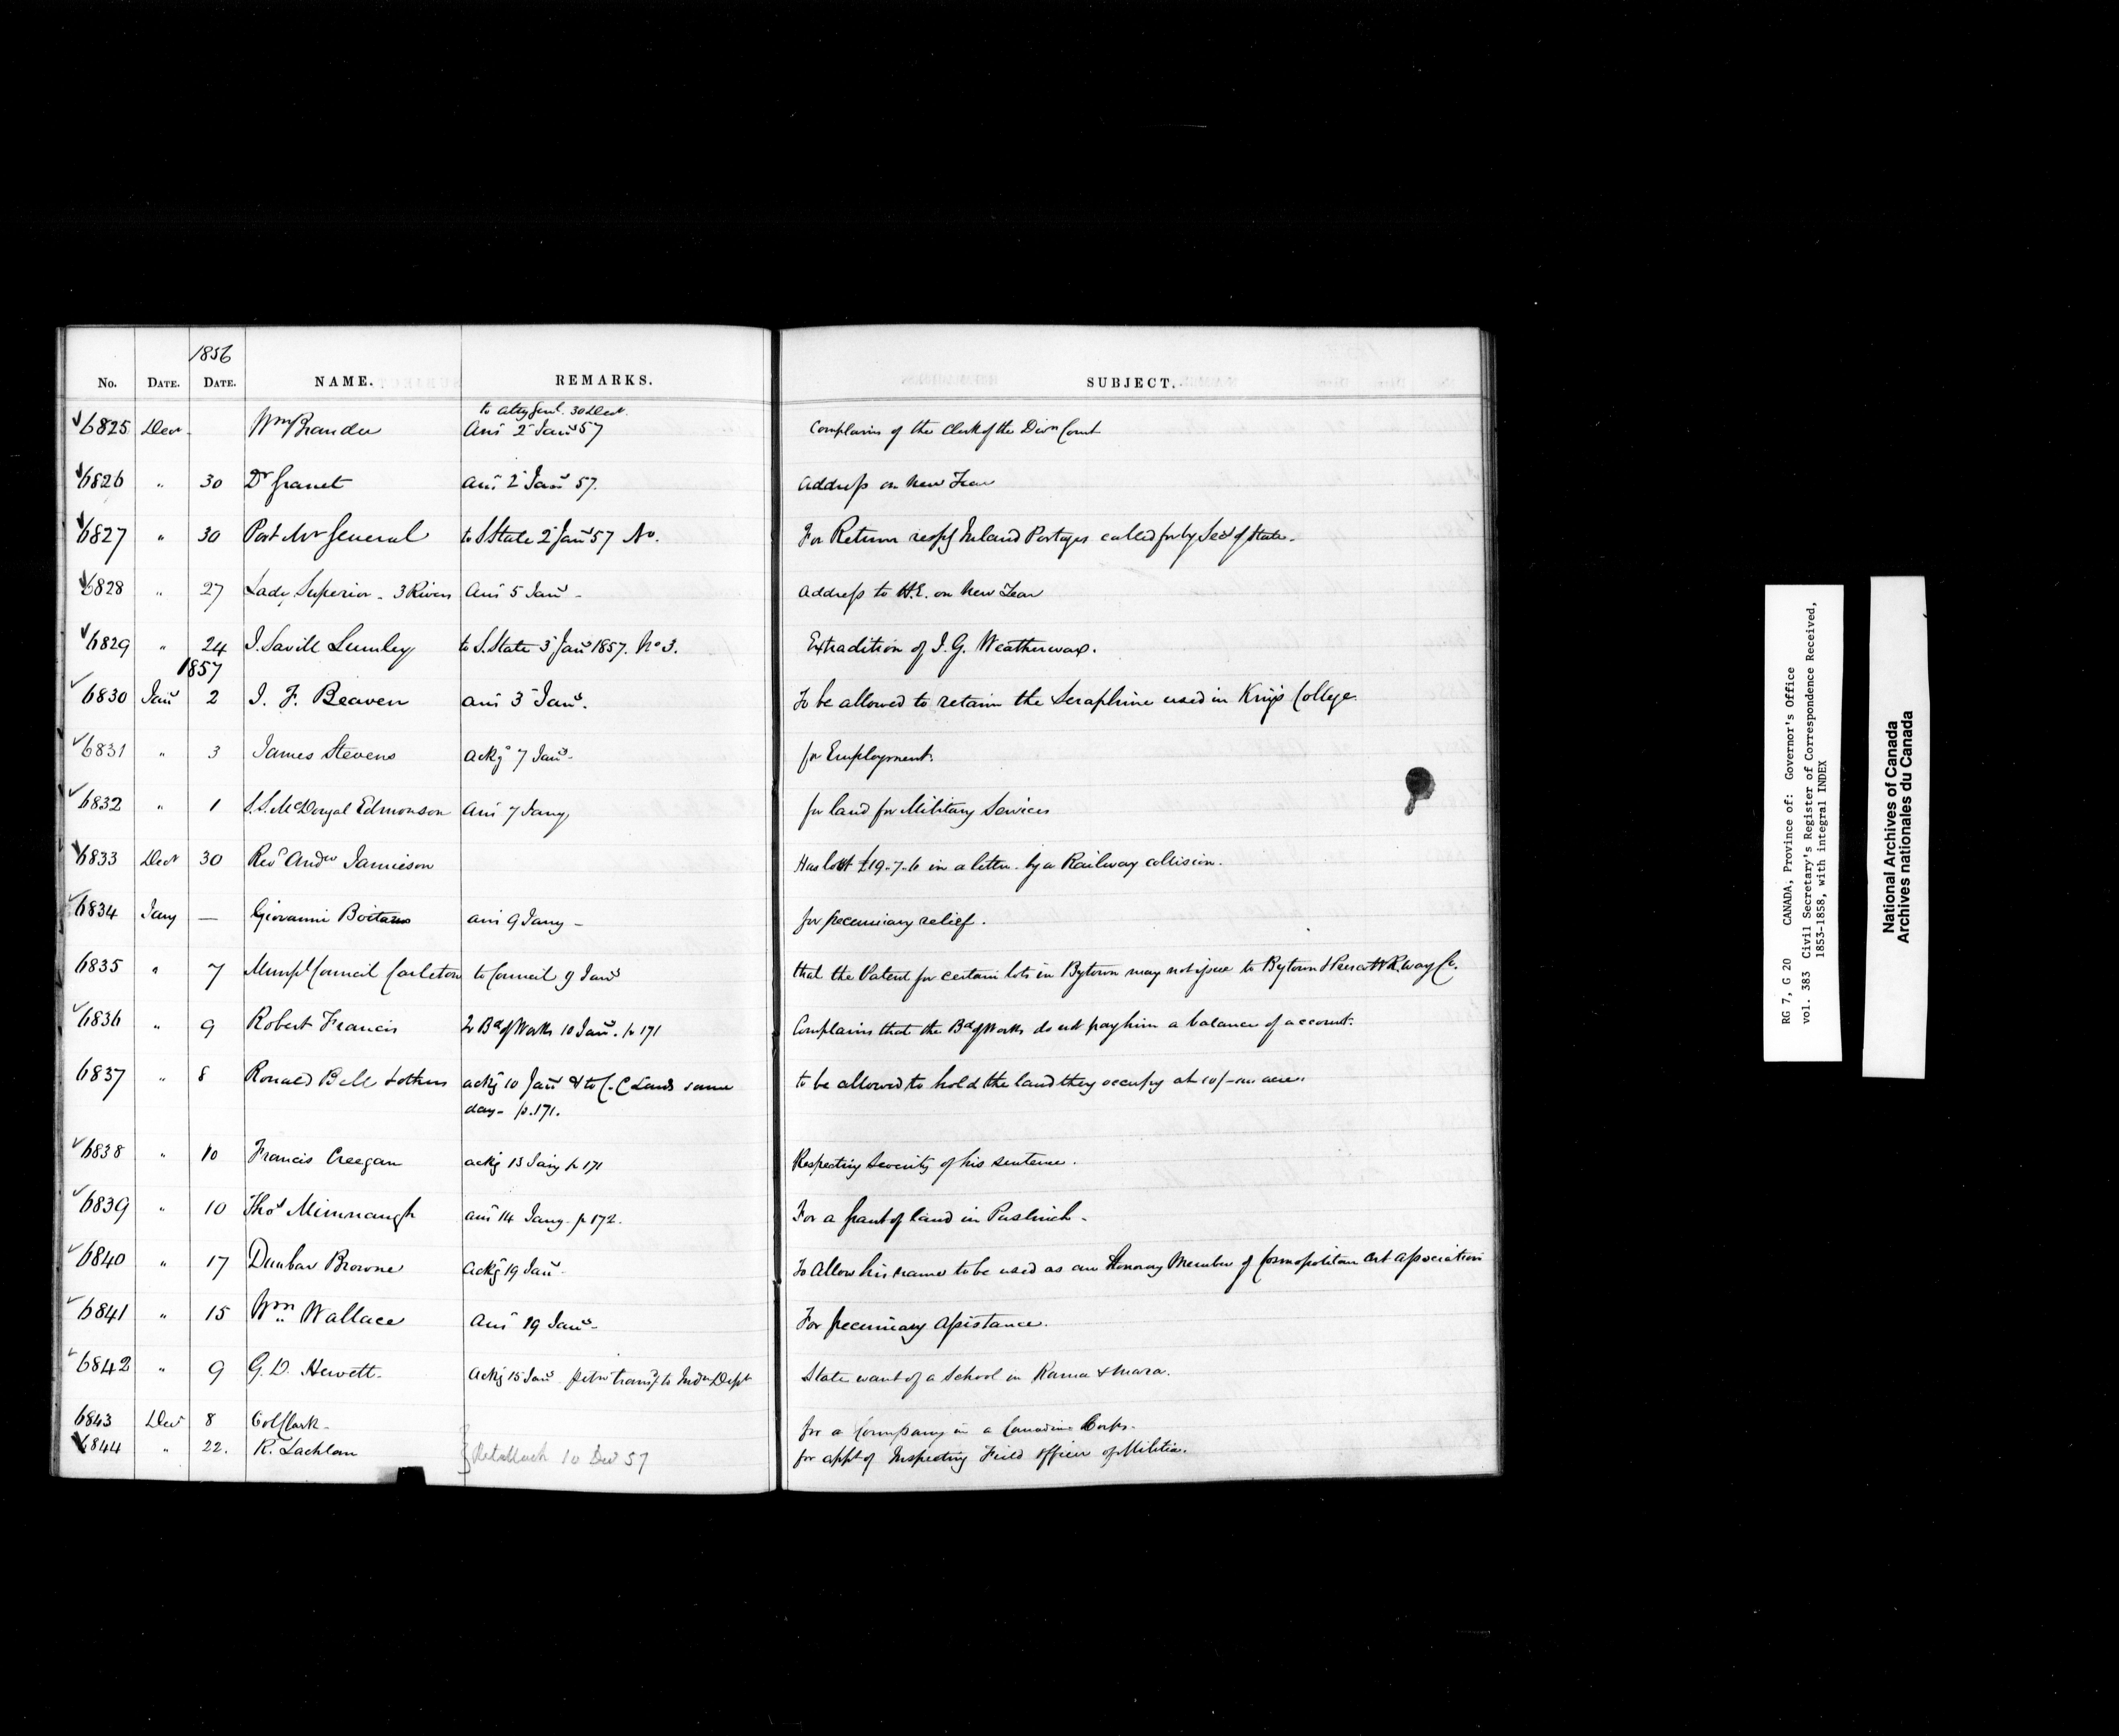 1856
No. DATE. DATE. NAME. REMARKS. SUBJECT.
to Atty Genl. 30 Decr.
6825 Decr. Wm Brander Ansd 2 Jany 57 Complains of the Clerk of the Divn Court
6826 " 30 Dr Granet ansd 2 Jany 57. Address on New Year
6827 " 30 Post Mr General to S State 2 Jany 57 No. For Return respg Inland Postages called for by Secy of State.
6828 " 27 Lady Superior - 3 Rivers Ansd 5 Jany - Address to H.E. on New Year
6829 " 24 J. Savill Lumley to S. State 3 Jany 1857. No 3. Extradition of J. G. Weatherwax.
1857
6830 Jany 2 J. F. Beaven ansd 3 Jany. To be allowed to retain the Seraphine used in King's College.
6831 " 3 James Stevens ackg 7 Jany - for Employment.
6832 " 1 S. S. McDougal Edmonson Ansd 7 Jany for land for Military Services
6833 Decr 30 Revd Andw Jamieson Has lost £19.7.6 in a letter by a Railway collision.
6834 Jany — Giovanni ansd 9 Jany - for pecuniary relief.
6835 " 7 Municpl Council Carleton to Council 9 Jany that the Patent for certain lots in Bytown may not issue to Bytown & Prescott R.way Co.
6836 " 9 Robert Francis To Bd of Works 10 Jany. p 171 Complains that the Bd of Works do not pay him a balance of account.
6837 " 8 Ronald Bell & others ackg 10 Jany & to C. C Lands same to be allowed to hold the land they occupy at 10/- an acre.
day - p.171.
6838 " 10 Francis Creegan ackg 13 Jany p 171 Respecting Severity of his sentence.
6839 " 10 Thos Minnaugh ansd 14 Jany. p 172. For a grant of land in Puslinch -
6840 " 17 Dunbar Browne Ackg 19 Jany - To Allow his name to be used as an Honorary Member of Cosmopolitan Art Association
6841 " 15 Wm Wallace Ansd 19 Jany - For pecuniary Assistance.
6842 " 9 G. D. Hewett. Ackg 15 Jany petn transfd to Indn Dept State want of a School in Rama & Mara.
6843 Decr 8 Col Clark - for a Company in a Canadian Corps -
6844 " 22. R. Lachlan 10 Decr 57 for appt of Inspecting Field Officer of Militia.
RG 7, G 20 CANADA, Province of: Governor's Office
vol. 383 Civil Secretary's Register of Correspondence Received,
1853-1858, with integral INDEX
National Archives of Canada
Archives nationales du Canada